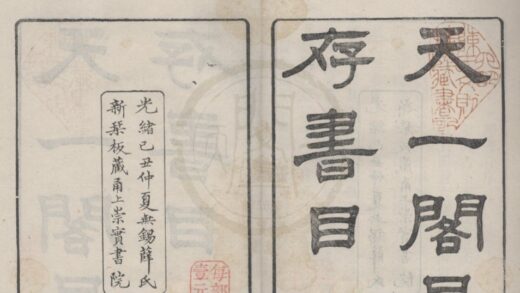 天一閣見
存書目
光緒己丑仲夏无錫薛氏
新槧板藏甬上崇實書院